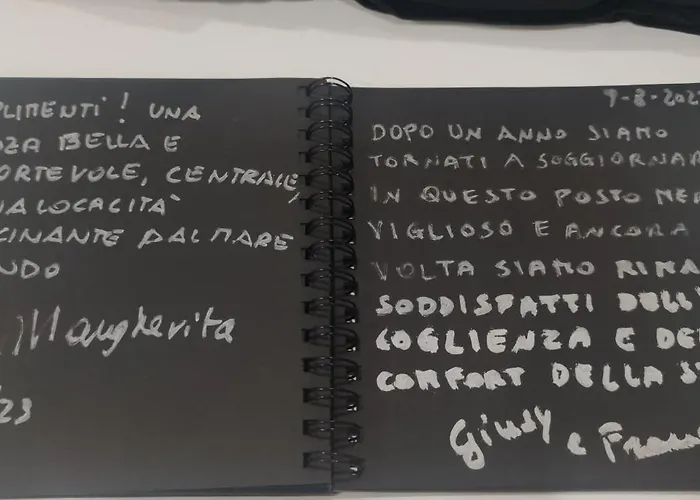 PLIMENTI! UNA
NZA BELLA E
ORTEVOLE, CENTRALE,
NA LOCALITA'
CINANTE DAL MARE
NDO
Margherita
/23
9-8-202
DOPO UN ANNO SIAMO
TORNATI A SOGGIORNAR
IN QUESTO POSTO MER
VIGLIOSO E ANCORA
VOLTA SIAMO RIMA
SODDISFATTI DELL'
COGLIENZA E DE
COMFORT DELLA S
Giusy e Fran